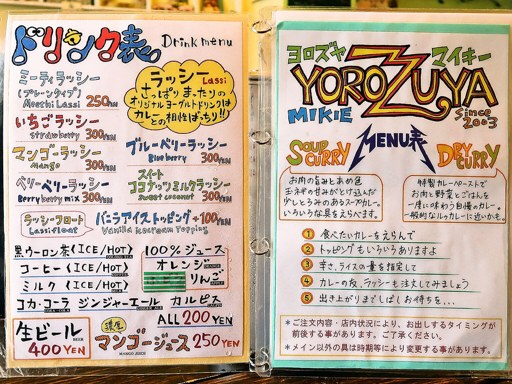 ドリンク表 Drink menu
ミーティラッシー
(プレーンタイプ)
Meethi Lassi 250YEN
いちごラッシー
Strawberry 300YEN
マンゴーラッシー
Mango 300YEN
ベリーベリーラッシー
Berry berry mix 300YEN
ラッシーフロート
Lassi float
バニラアイストッピング+100YEN
Vanilla icecream topping
ラッシー Lassi
さっぱり まったりの
オリジナルヨーグルトドリンクは
カレーとの相性ばっちり!!
ブルーベリーラッシー
Blueberry 300YEN
スイート
ココナッツミルクラッシー
Sweet coconut 300YEN
黒ウーロン茶〈ICE/HOT〉
コーヒー〈ICE/HOT〉
ミルク〈ICE/HOT〉
100%ジュース
オレンジ
りんご
コカ・コーラ ジンジャーエール カルピス
ALL 200YEN
生ビール
400YEN
マンゴージュース 250YEN
MANGO JUICE
ヨロズヤ マイキー
YOROZUYA
MIKIE
Since
2003
MENU表
SOUP
CURRY
お肉の旨みとあめ色
玉ネギの甘みがとけ込んだ
少しとろみのあるスープカレー。
いろいろな具をえらべます。
DRY
CURRY
特製カレーペーストで
お肉と野菜とごはんを
一度に味わう自慢のカレー。
一般的なルゥカレーに近いかも。
① 食べたいカレーをえらんで
② トッピングもいろいろありますよ
③ 辛さ、ライスの量を指定して
④ カレーの友、ラッシーも注文してみましょう
⑤ 出き上がりまでしばしお待ちを...
*ご注文内容・店内状況により、お出しするタイミングが
前後する事があります。ご了承ください。
*メイン以外の具は時期等により変更する事があります。